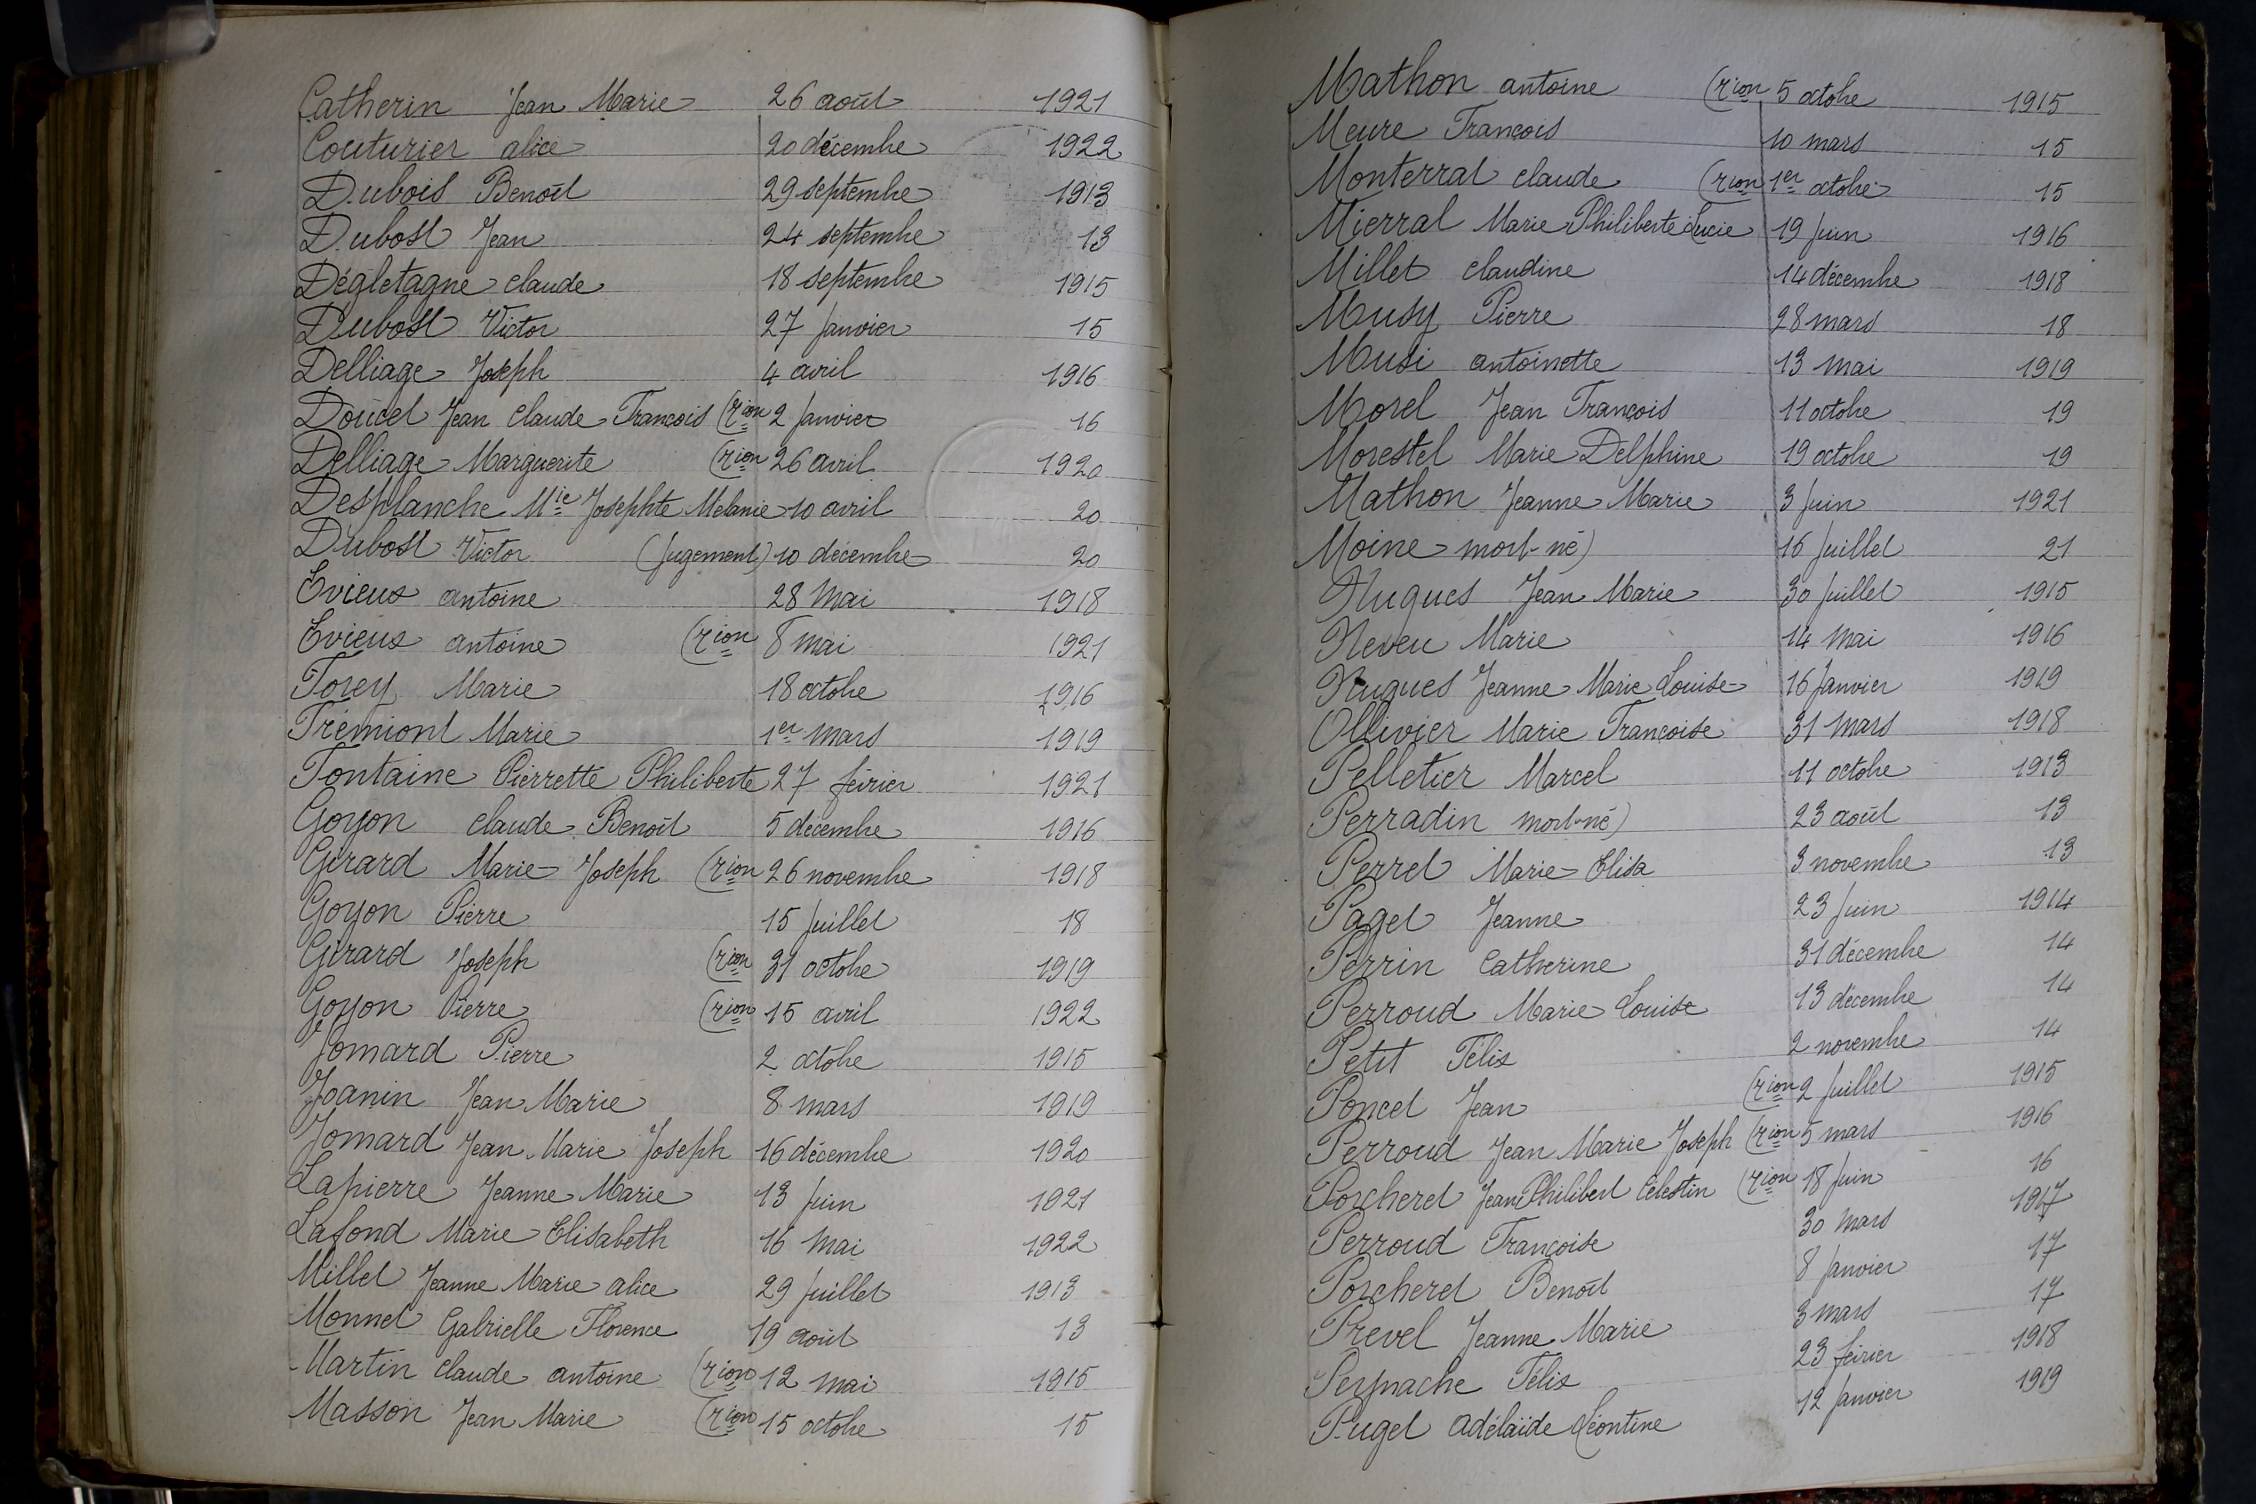 Catherin Jean Marie 26 août 1921
Couturier alice 20 décembre 1922
Dubois Benoît 29 septembre 1913
Dubost Jean 24 septembre 13
Dégletagne claude 18 septembre 1915
Dubost Victor 27 Janvier 15
Delliage Joseph 4 avril 1916
Doucet Jean claude François (rion 2 Janvier 16
Delliage Marguerite (rion 26 avril 1920
Desplanche Mie Josephte Melanie 10 avril 20
Dubost Victor (Jugement) 10 décembre 20
Evieux antoine 28 Mai 1918
Evieux antoine (rion 8 mai 1921
Forey Marie 18 octobre 1916
Frémiont Marie 1er Mars 1919
Fontaine Pierrette Philiberte 27 février 1921
Goyon claude Benoît 5 décembre 1916
Girard Marie Joseph (rion 26 novembre 1918
Goyon Pierre 15 Juillet 18
Girard Joseph (rion 31 octobre 1919
Goyon Pierre (rion 15 avril 1922
Jomard Pierre 2 octobre 1915
Joanin Jean Marie 8 mars 1919
Jomard Jean Marie Joseph 16 décembre 1920
Lapierre Jeanne Marie 13 Juin 1921
Lafond Marie Elisabeth 16 Mai 1922
Millet Jeanne Marie alice 29 Juillet 1913
Monnet Gabrielle Florence 19 août 13
Martin claude antoine (rion 12 mai 1915
Masson Jean Marie (rion 15 octobre 15
Mathon antoine (rion 5 octobre 1915
Meure François 10 mars 15
Monterrat claude (rion 1er octobre 15
Mierral Marie Philiberte Lucie 19 Juin 1916
Millet claudine 14 décembre 1918
Musy Pierre 28 mars 18
Musi antoinette 13 Mai 1919
Morel Jean François 11 octobre 19
Morestel Marie Delphine 19 octobre 19
Mathon Jeanne Marie 3 Juin 1921
Moine mort-né) 16 Juillet 21
Nugues Jean Marie 30 Juillet 1915
Neveu Marie 14 Mai 1916
Nugues Jeanne Marie Louise 16 Janvier 1919
Ollivier Marie Françoise 31 Mars 1918
Pelletier Marcel 11 octobre 1913
Perradin mort-né) 23 août 13
Perret Marie Elisa 3 novembre 13
Paget Jeanne 23 Juin 1914
Perrin Catherine 31 décembre 14
Perroud Marie Louise 13 décembre 14
Petit Félix 2 novembre 14
Poncet Jean (rion 2 Juillet 1915
Perroud Jean Marie Joseph (rion 5 mars 1916
Porcheret Jean Philibert Célestin (rion 18 Juin 16
Perroud Françoise 30 Mars 1917
Porcheret Benoît 8 Janvier 17
Prevel Jeanne Marie 3 mars 17
Peynache Félix 23 février 1918
Puget Adélaïde Léontine 12 Janvier 1919